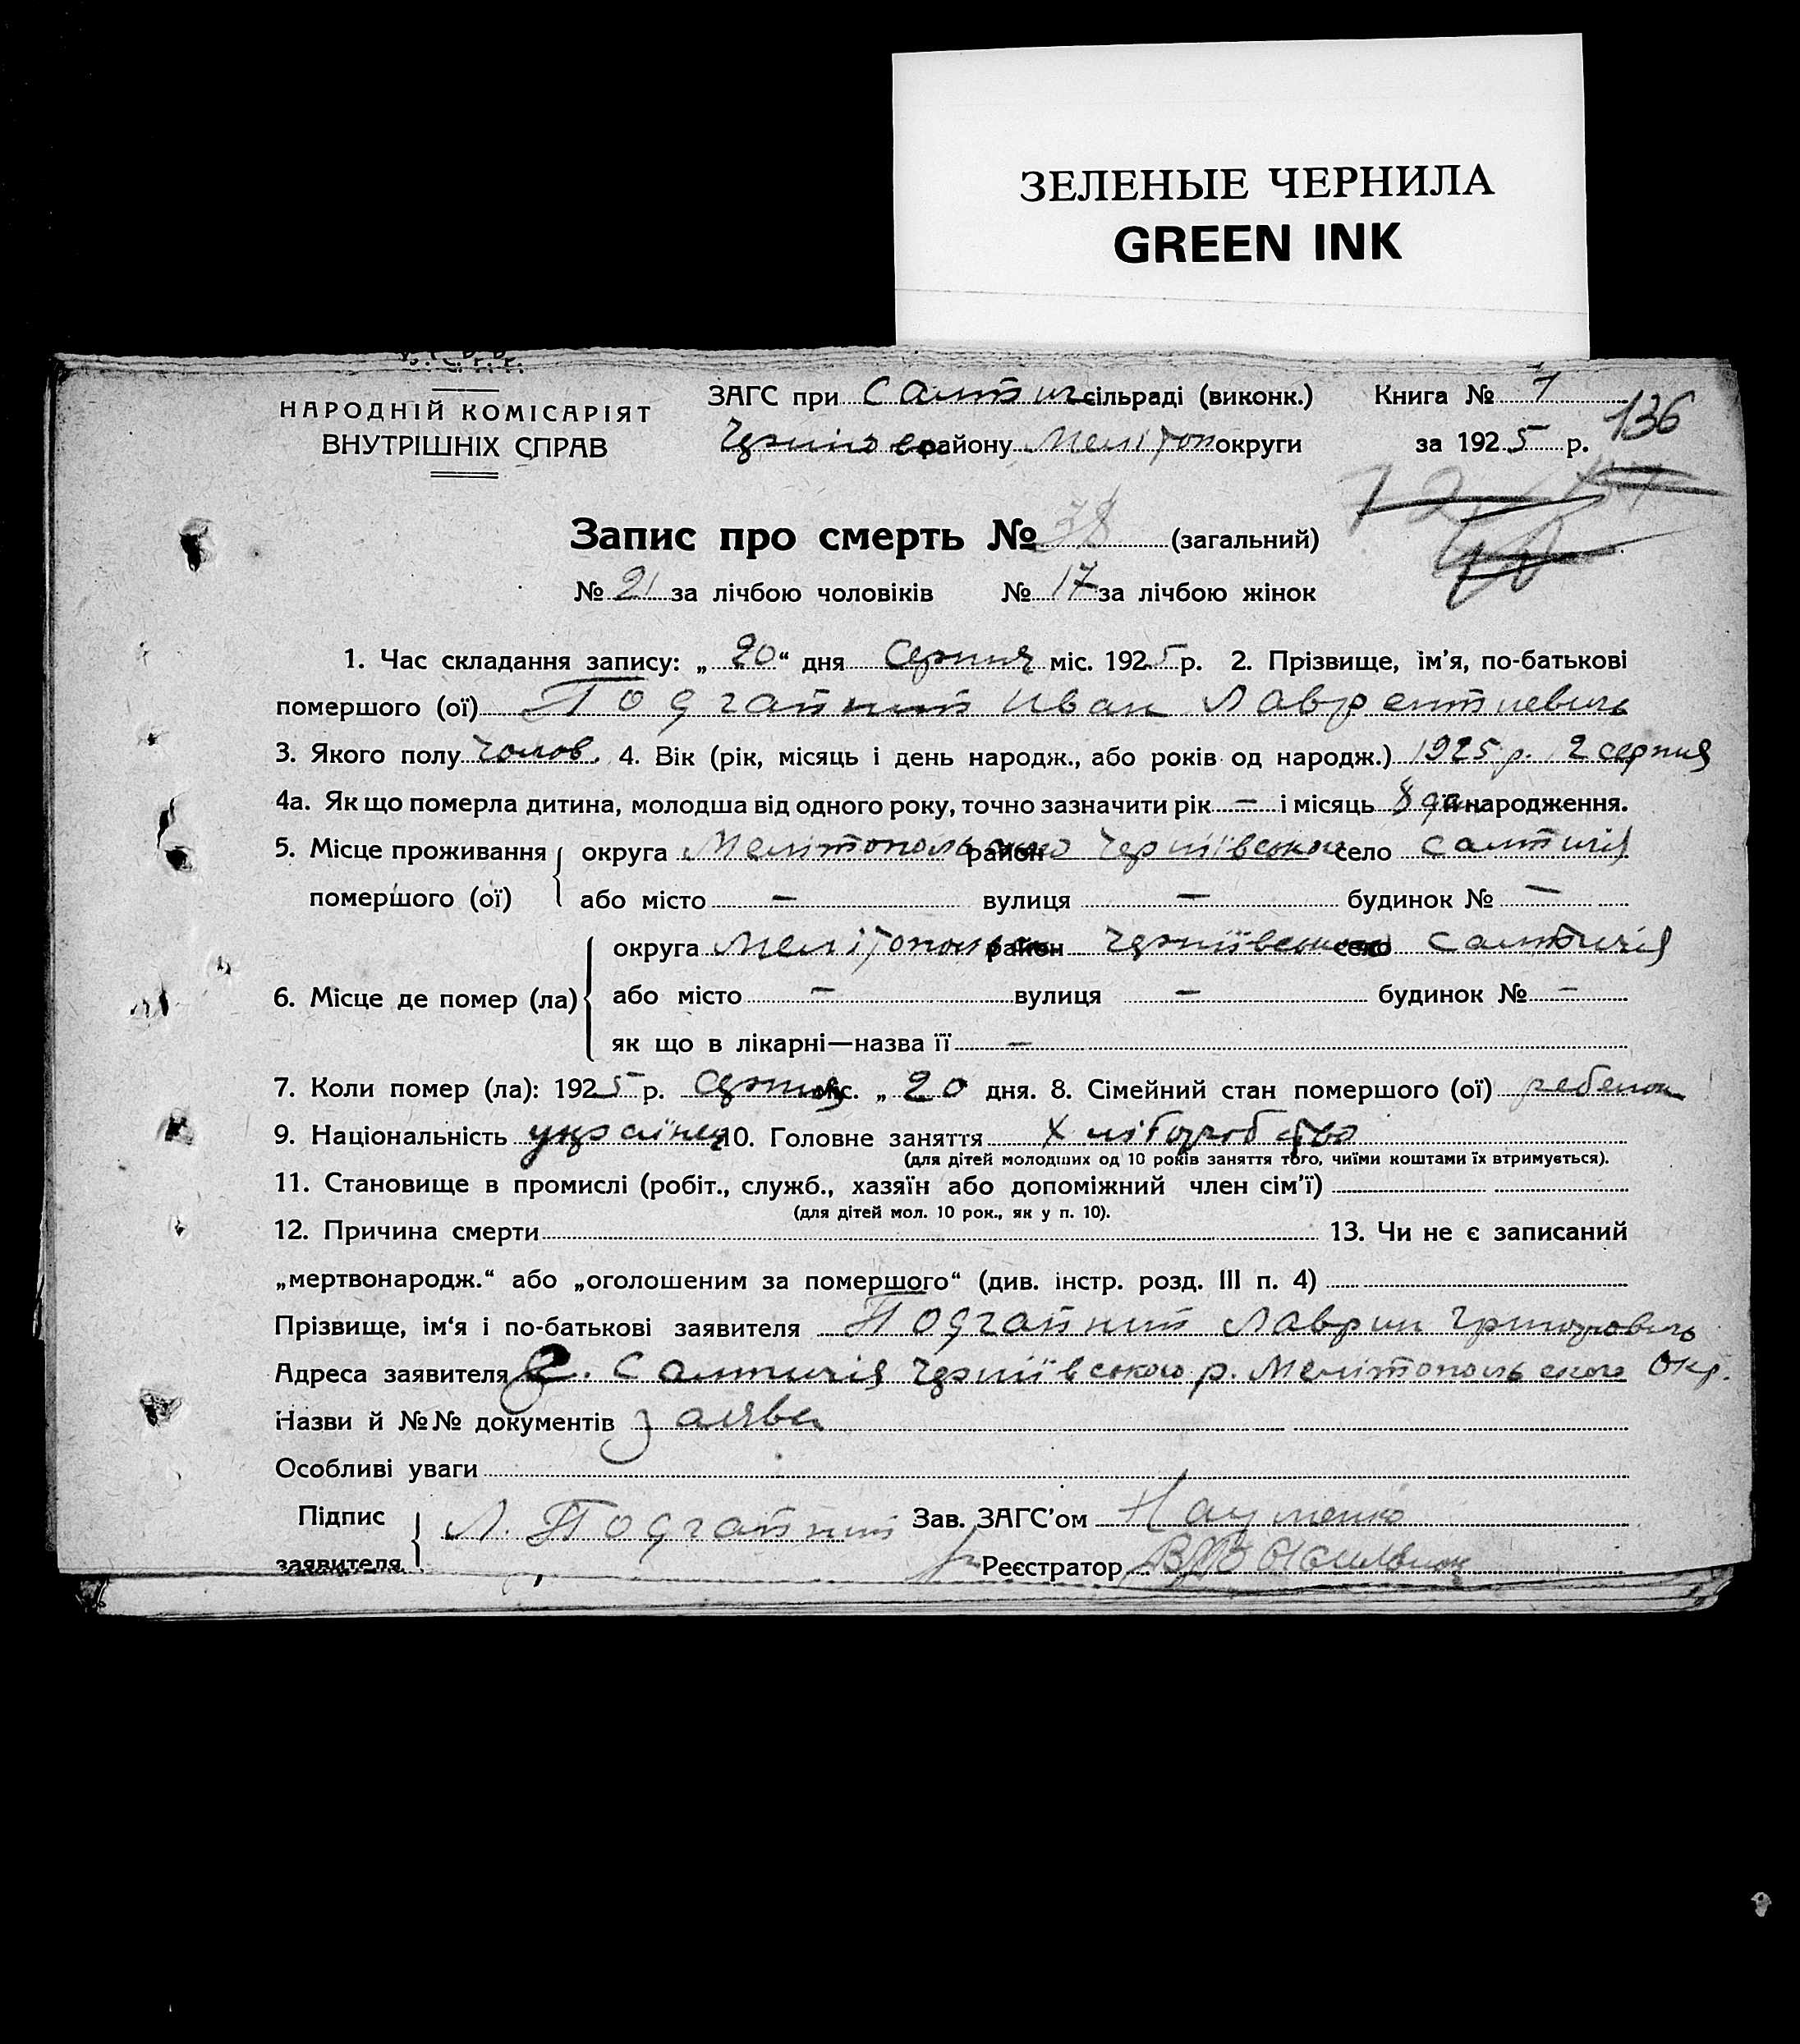 ЗЕЛЕНЫЕ ЧЕРНИЛА
GREEN INK
НАРОДНІЙ КОМІСАРІЯТ
ВНУТРІШНІХ СПРАВ
ЗАГС при Салтич сільраді (виконк.) Книга № 1
району Меліtоп округи за 1925 р. 136
Запис про смерть № 38 (загальний)
№ 21 за лічбою чоловіків № 17 за лічбою жінок
1. Час складання запису: „ 20 “ дня Серпня міс. 1925 р. 2. Прізвище, ім’я, по-батькові
помершого (ої) Подгайний Иван Лаврентиевичь
3. Якого полу чолов. 4. Вік (рік, місяць і день народж., або років од народж.) 1925 р. 12 серпня
4а. Як що померла дитина, молодша від одного року, точно зазначити рік — і місяць 8 дн її народження.
5. Місце проживання округа Мелітопольського район Черніївського село Салтичія
помершого (ої) або місто — вулиця — будинок № —
округа Мелітопольск район Черніївського село Салтичія
6. Місце де помер (ла) або місто — вулиця — будинок № —
як що в лікарні—назва її —
7. Коли помер (ла): 1925 р. Серпня міс. „ 20 дня. 8. Сімейний стан помершого (ої) ребенок
9. Національність українец 10. Головне заняття Хліборобство
(для дітей молодших од 10 років заняття того, чиїми коштами їх втримується).
11. Становище в промислі (робіт., служб., хазяїн або допоміжний член сім’ї)
(для дітей мол. 10 рок., як у п. 10).
12. Причина смерти 13. Чи не є записаний
„мертвонародж.“ або „оголошеним за помершого“ (див. інстр. розд. III п. 4)
Прізвище, ім‘я і по-батькові заявителя Подгайний Лаврин Григоровичь
Адреса заявителя С. Салтичія Черніївського р. Мелітопольського Окр.
Назви й №№ документів заява
Особливі уваги
Підпис Л. Подгайний Зав. ЗАГС’ом Науменко
заявителя Реєстратор